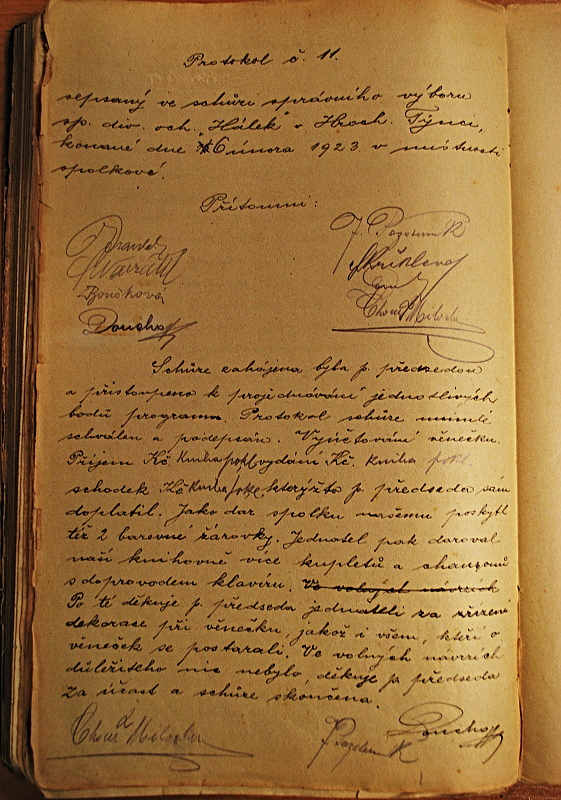 Protokol č. 11.
sepsaný ve schůzi správního výboru
sp. div. och. „Hálek" v Hroch. Týnci,
konané dne 16 února 1923. v místnosti
spolkové.
Přítomni:
J. Pazderník
Boučková
Doucha
Chour Miloslav
Schůze zahájena byla p. předsedou
a přistoupeno k projednávání jednotlivých
bodů programu. Protokol schůze minulé
schválen a podepsán. Vyúčtování věnečku.
Příjem Kč kniha pokl. vydání Kč. kniha pokl.
schodek Kč kniha pokl. kterýžto p. předseda sám
doplatil. Jako dar spolku našemu poskytl
též 2 barevné žárovky. Jednatel pak daroval
naší knihovně více kupletů a chansonů
s doprovodem klavíru. Ve volných návrzích
Po té děkuje p. předseda jednateli za zřízení
dekorace při věnečku, jakož i všem, kteří o
věneček se postarali. Ve volných návrzích
důležitého nic nebylo, děkuje p. předseda
za účast a schůze skončena.
Chour Miloslav J. Pazderník Doucha